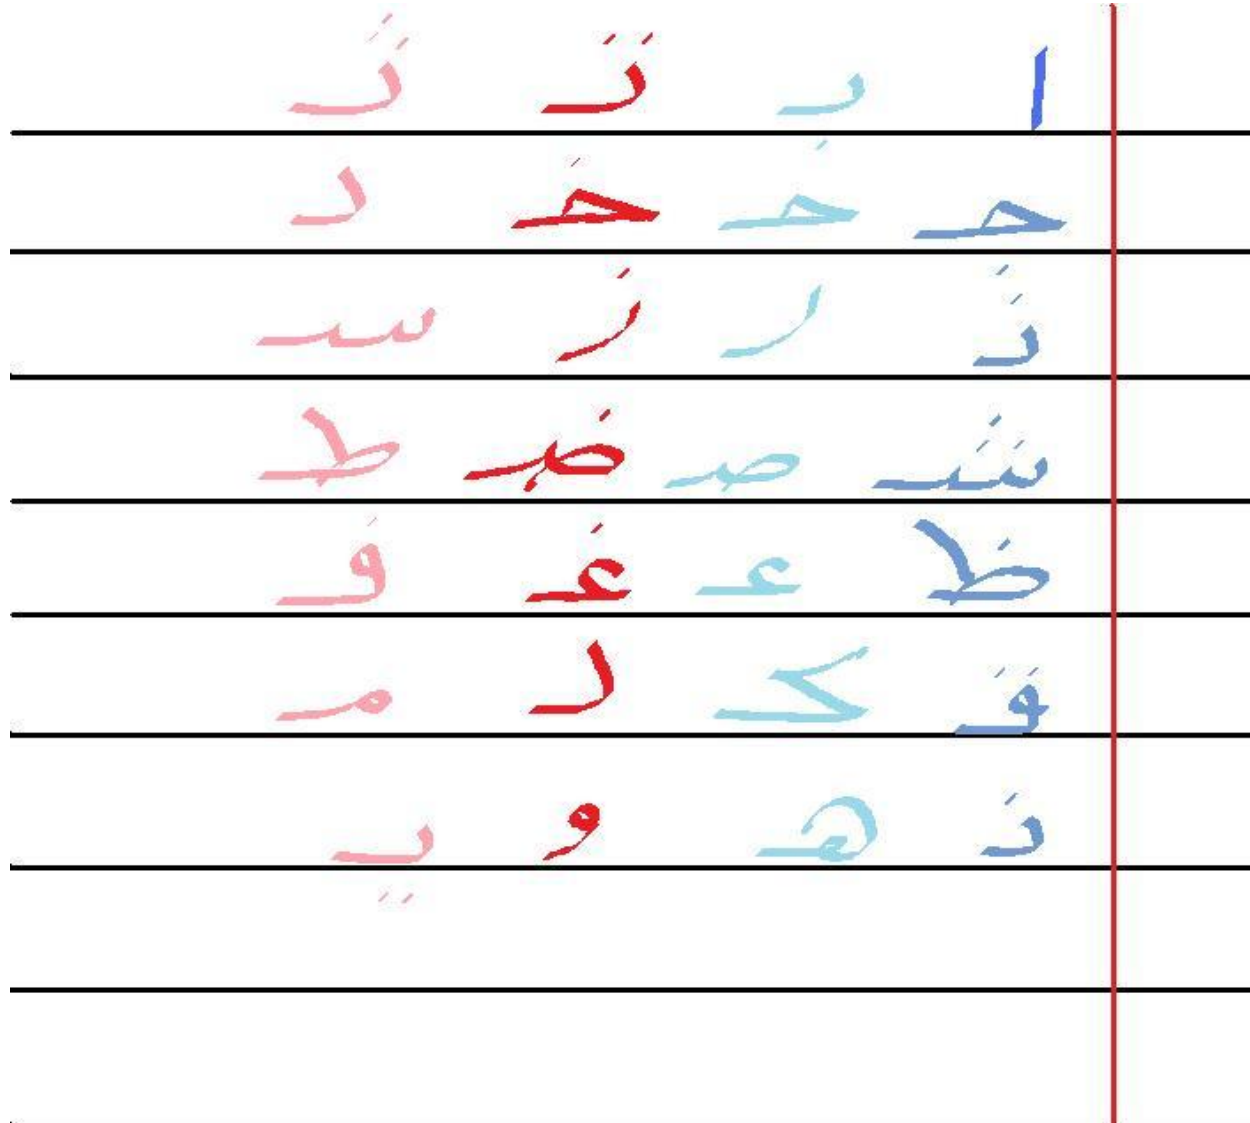 ا ٮـ تـ ثـ
حـ خـ خـ د
ذ ر ز سـ
شـ صـ ضـ طـ
ظـ عـ غـ فـ
قـ کـ لـ مـ
نـ هـ و يـ